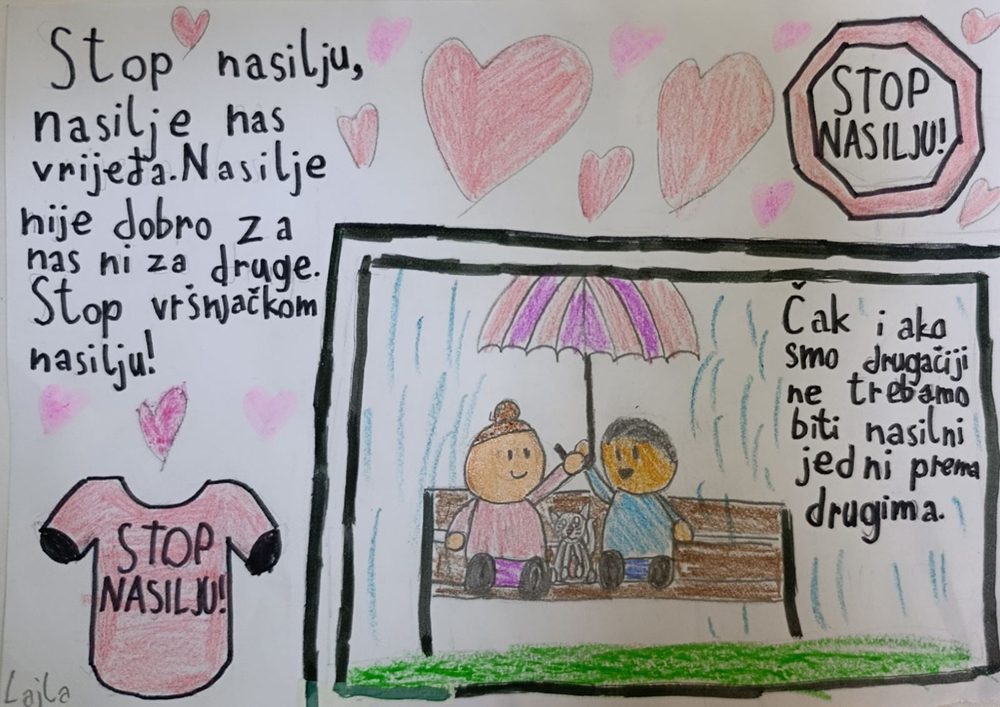 Stop nasilju,
nasilje nas
vrijeđa. Nasilje
nije dobro za
nas ni za druge.
Stop vršnjačkom
nasilju!
STOP
NASILJU!
Čak i ako
smo drugačiji
ne trebamo
biti nasilni
jedni prema
drugima.
STOP
NASILJU!
Lajla